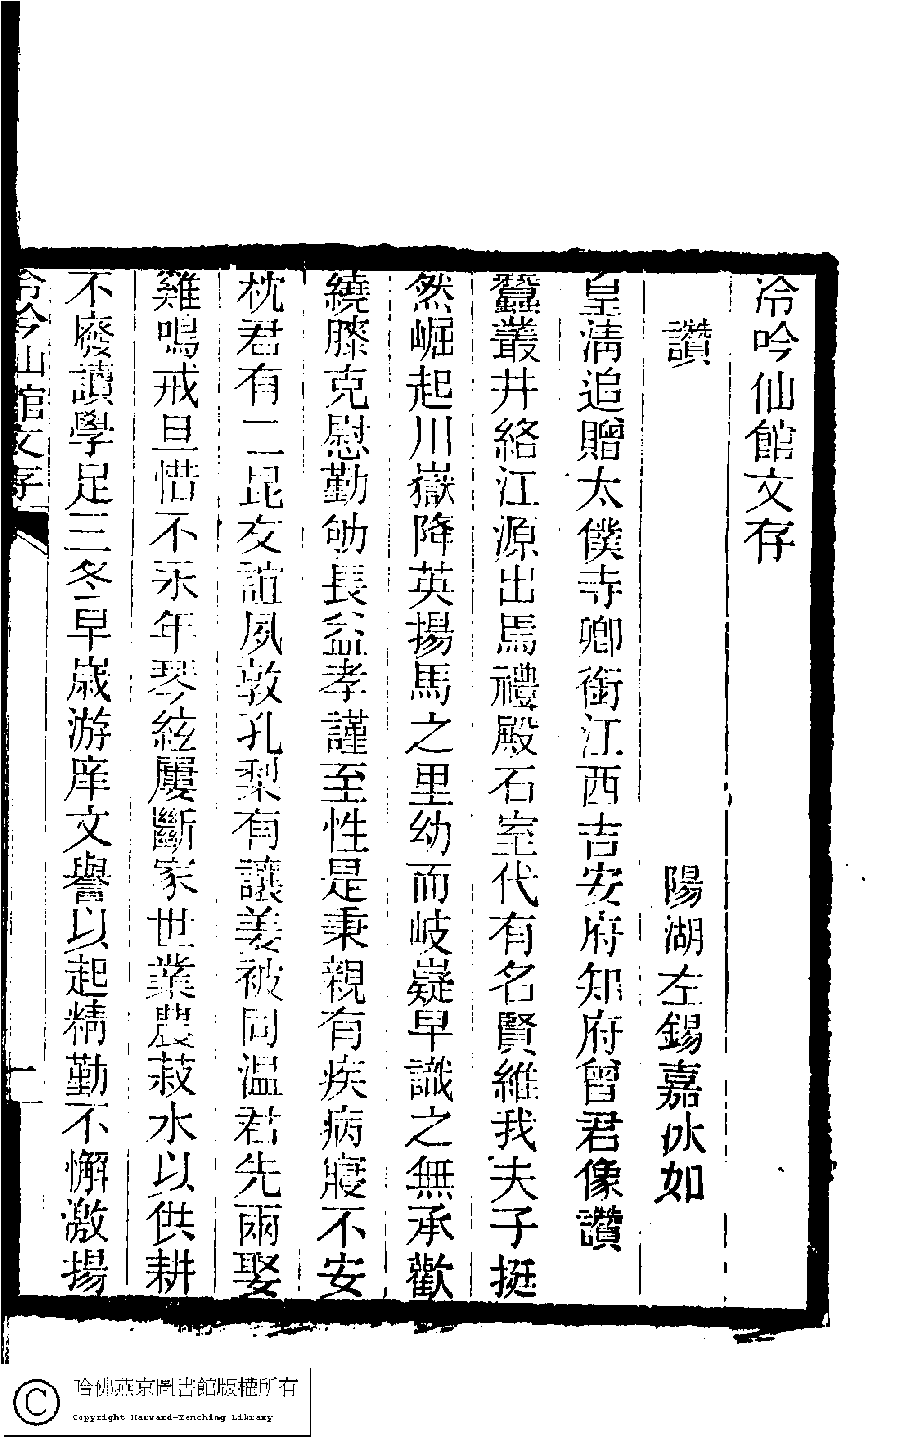 冷吟仙館文存
讚
陽湖左錫嘉冰如
皇清追贈太僕寺卿銜江西吉安府知府曾君像讚
蠶叢井絡江源出焉禮殿石室代有名賢維我夫子挺
然崛起川嶽降英揚馬之里幼而岐嶷早識之無承歡
繞膝克慰勤劬長益孝謹至性是秉親有疾病寢不安
枕君有二昆友誼夙敦孔梨有讓姜被同溫君先兩娶
雞鳴戒旦惜不永年琴絃屢斷家世業農菽水以供耕
不廢讀學足三冬早歲游庠文譽以起精勤不懈激揚
冷吟仙館文存
一
哈佛燕京圖書館版權所有
Copyright Harvard-Yenching Library